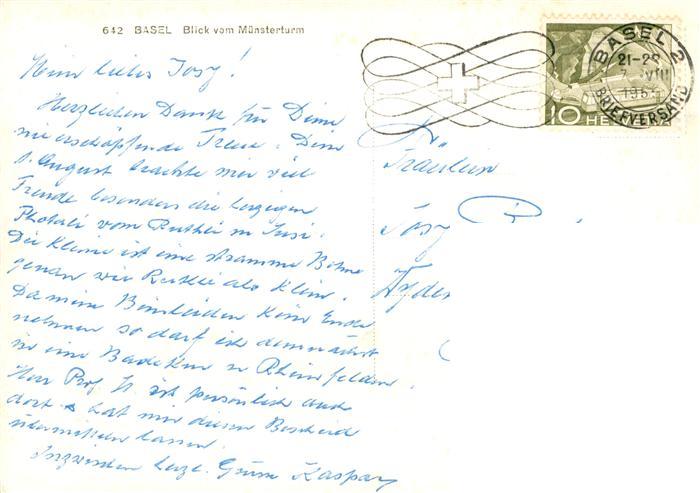 642 BASEL Blick vom Münsterturm
BASEL 2
21-
VIII
BRIEFVERSAND
10 HELVETIA
Mein liebes Josy!
Herzlichen Dank für Deine
nie erschöpfende Treue. Dein
1. August brachte mir viel
Freude besonders die
vom Ruthli in
Die Kleine ist eine stramme
genau wie Ruthli als Klein.
Da meine Beinleiden kein Ende
nehmen so darf ich demnächst
in eine Badekur n. Rheinfelden.
Herr Prof. H. ist persönlich auch
dort & hat mir diesen Bescheid
übermitteln lassen.
Inzwischen herzl. Grüsse Kaspar
Fräulein
Josy